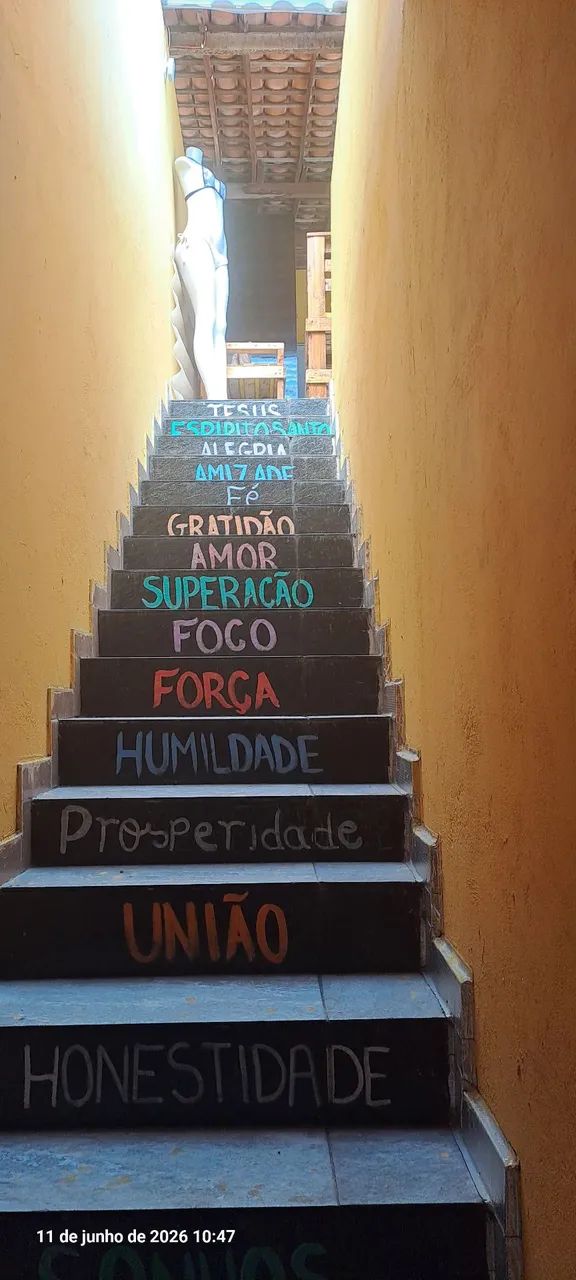 JESUS
ESPIRITO SANTO
ALEGRIA
AMIZADE
Fé
GRATIDÃO
AMOR
SUPERAÇÃO
FOCO
FORÇA
HUMILDADE
Prosperidade
UNIÃO
HONESTIDADE
11 de junho de 2026 10:47
SONHOS